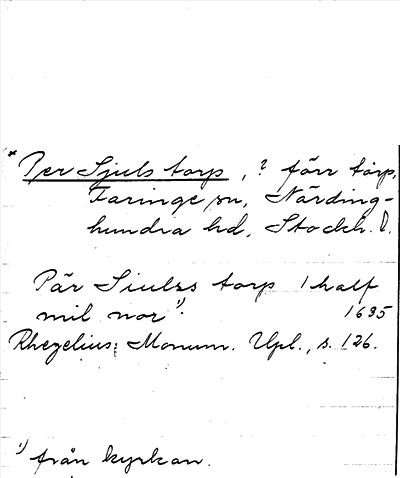 * Per Sjuls torp, ? förr torp,
Faringe sn, Närding-
hundra hd, Stockh. l.
Pär Siulss torp 1 half
mil nor 1).
1635
Rhezelius, Monum. Upl., s. 126.
1) från kyrkan.